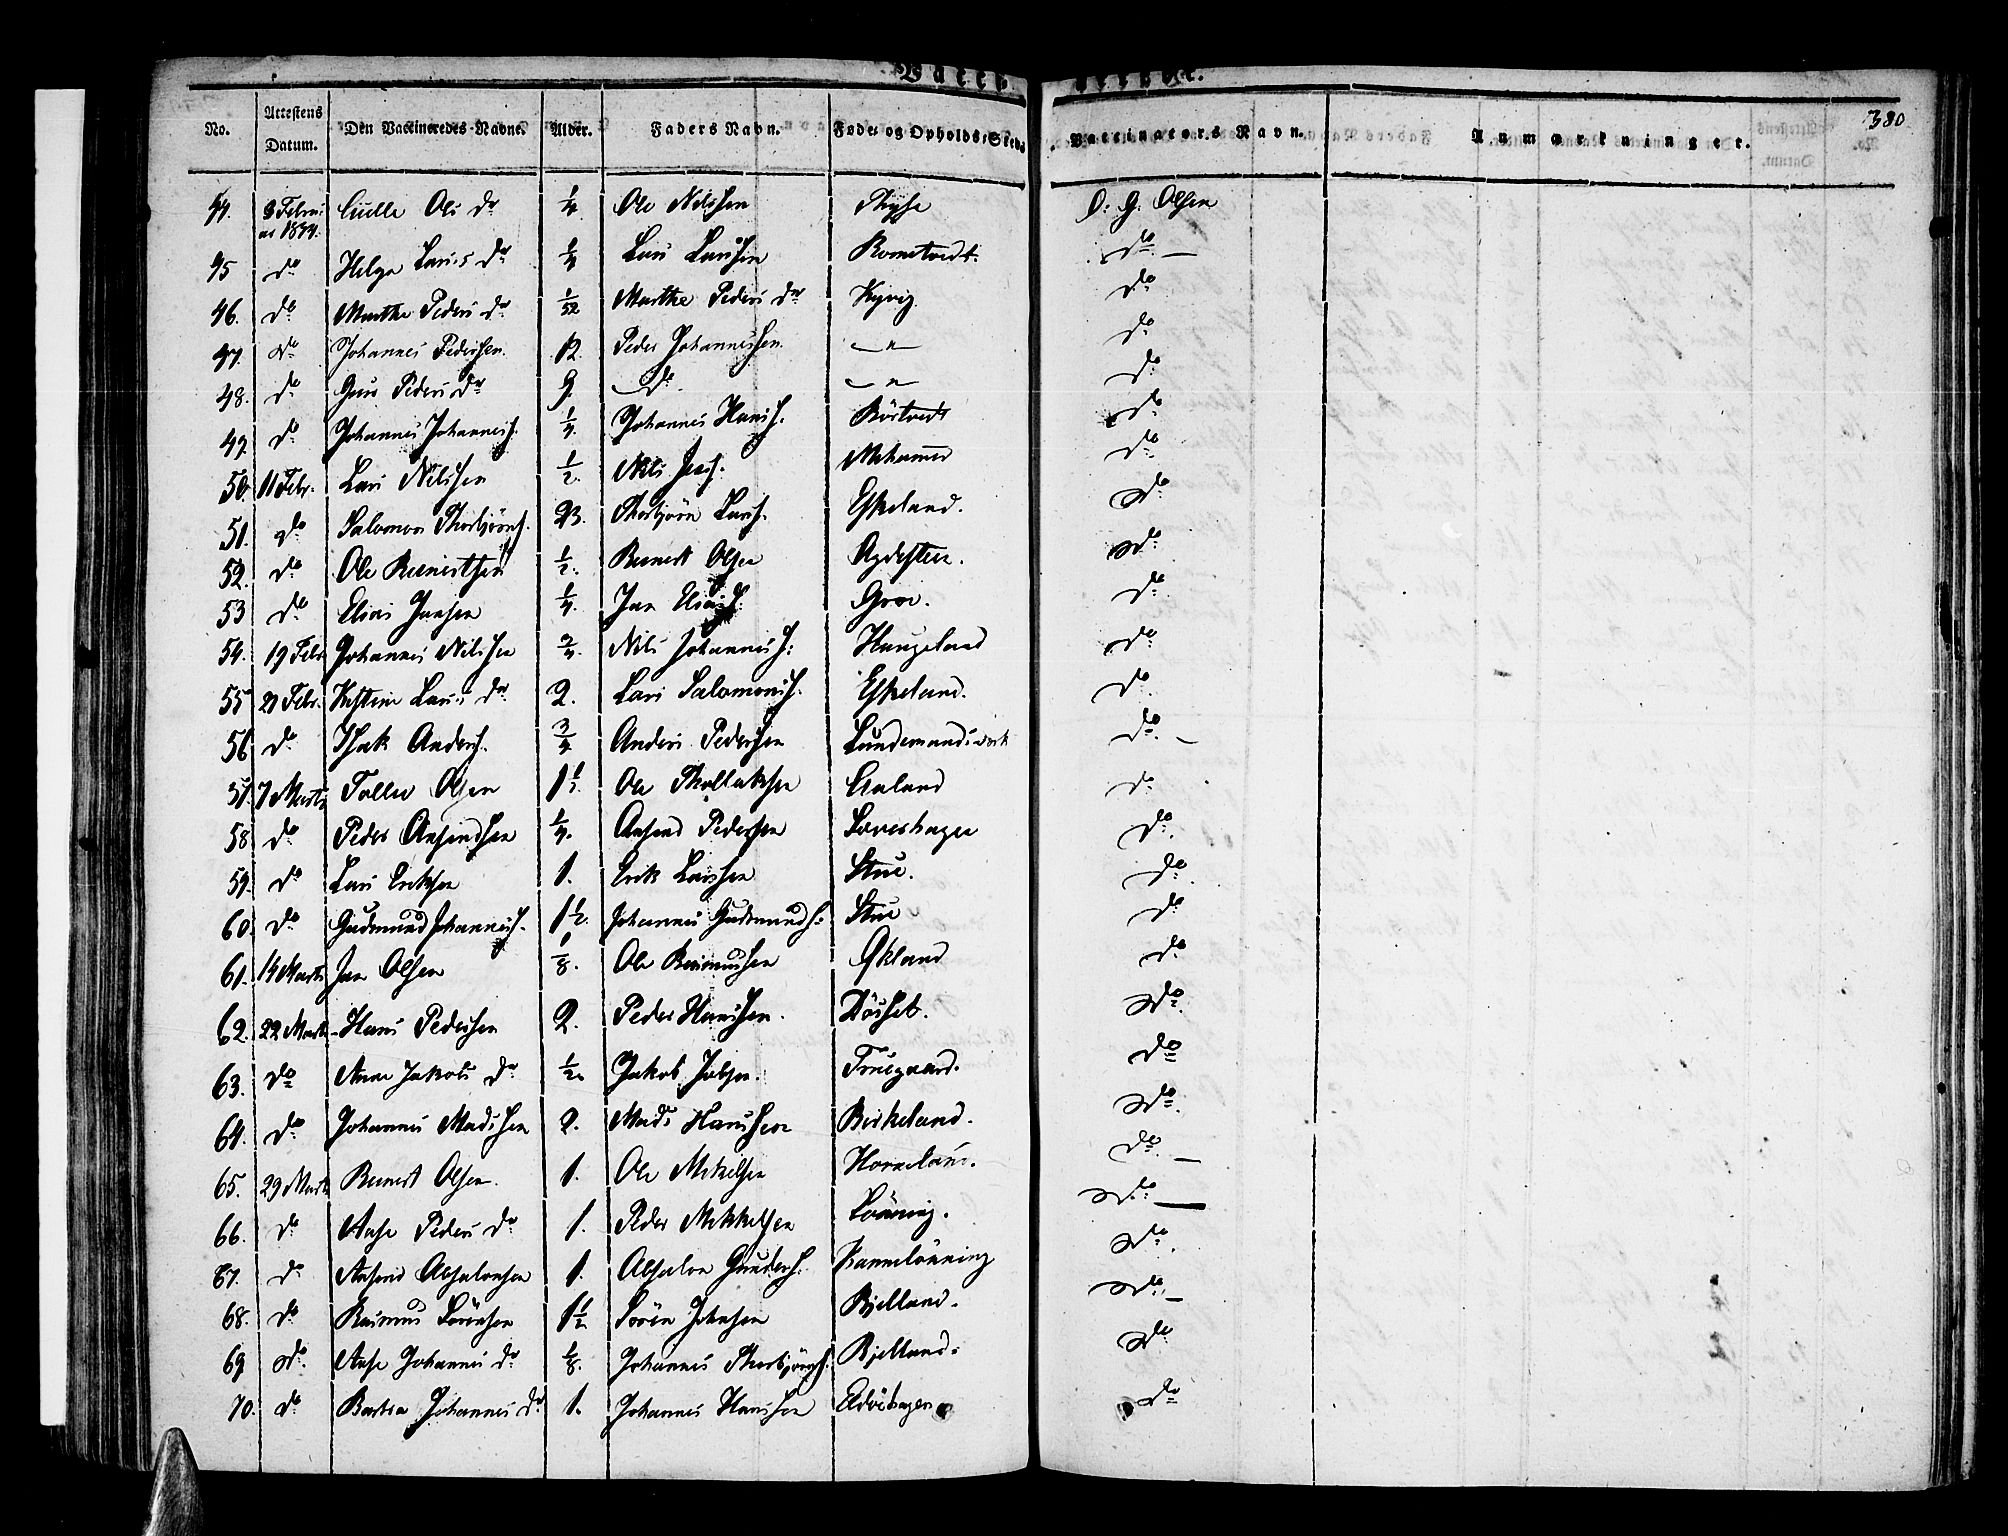 380
No. Attestens Datum. Den Vaccineredes Navne. Alder. Faders Navn. Føde- og Opholds-Sted. Vaccinators Navn. Anmærkninger.
44. 8 Februar 1834. Ole Nilssen O. G. Olsen
45 do Helga Larsdr 1/4 Lars Larssen Rometvedt. do
46. do Marthe Pedersdr 1/52 Marthe Pedersdr Kyvig do
47. do Johannes Pederssen. 12. Peder Johannessen. — " do
48. do Pedersdr 9. do — " do
49. do Johannes Johanness. 1/4. Johannes Hanss. Børtvedt do
50. 11 Febr. Lars Nilssen 1/2. Nils do
51. do Salomon Thorbjörns. 23. Thorbjörn Larss. Eskeland. do
52. do Ole Reinertsen 1/2. Reinert Olsen do
53 do Elias Jansen 1/4. Jan Eliass. do
54. 19 Febr Johannes Nilssen 3/4. Nils Johanness: Haugeland do
55 21 Febr. Larsdr 2. Lars Salomonss. Eskeland. do
56 do Isak Anderss. 3/4 Anders Pederssen Lundemandsverk do
57. 7 Marts Olsen 1 1/2. Ole Thollaksen do
58 do Peder Ansendsen 1/4. Ansend Pedersen do
59. do Lars Eriksen 1. Erik Larssen Stue. do
60. do Gudmund Johanness. 1 1/2. Johannes Gudmunds: Stue do
61. 14 Marts Jan Olsen 1/8. Ole Rasmussen Økland do
62. 22 Marts Hans Pederssen 2. Peder Hanssen. do
63. do Anne Jakobsdr 1/2. Jakob do
64. do Johannes Madssen 2. Mads Hanssen Birkeland. do
65. 29 Marts Reinert Olsen. 1. Ole Mikelsen Horneland. do
66. do Anse Pedersdr 1. Peder Mikkelsen Lönning. do
67. do Ansend Absalonsen 1. Absalon Gunders. do
68. do Rasmus Sörensen 1 1/2 Sören Johnsen Bjelland. do
69 do Anse Johannesdr 1/8. Johannes Thorbjörns. Bjelland. do
70. do Barbra Johannesdr 1. Johannes Hanssen do